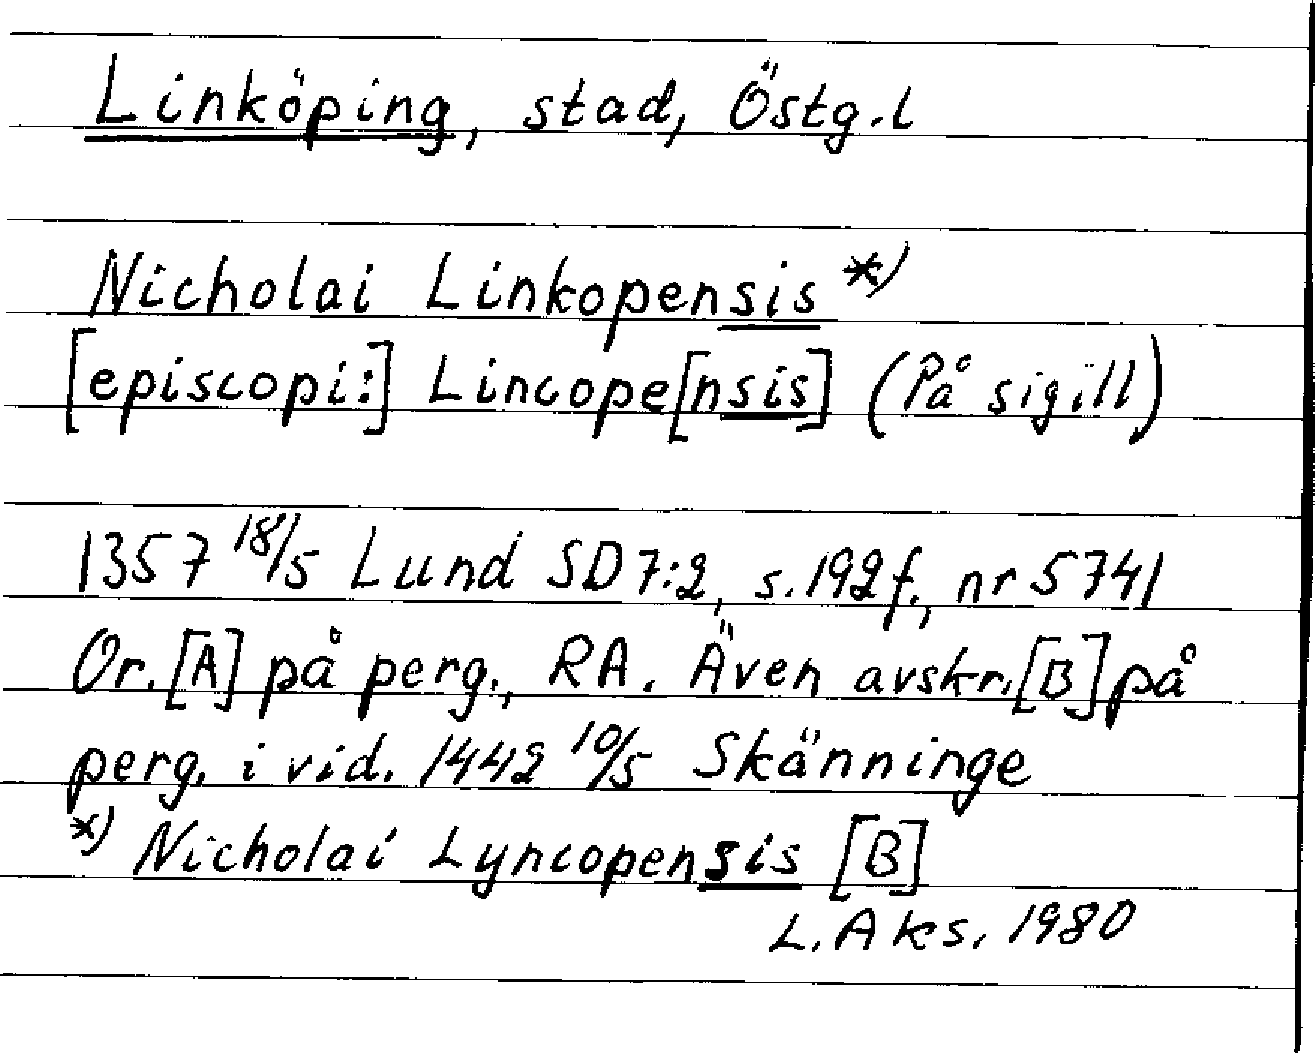 Linköping, stad, Östg.l
Nicholai Linkopensis *)
[episcopi:] Lincope[nsis] (På sigill)
1357 18/5 Lund SD 7:2, s. 192 f., nr 5741
Or. [A] på perg., RA. Även avskr. [B] på
perg. i vid. 1442 10/5 Skänninge
*) Nicholai Lyncopensis [B]
L. Aks. 1980